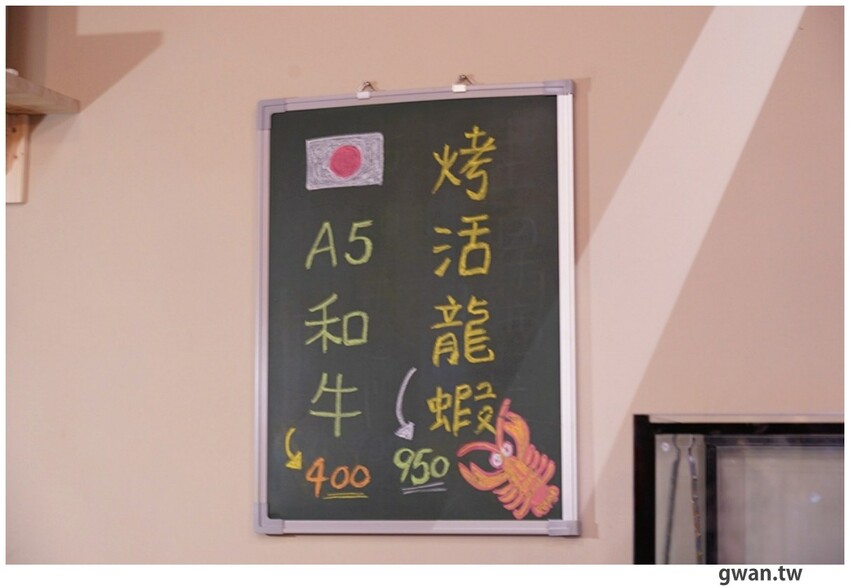 烤活龍蝦
950
A5和牛
400
gwan.tw